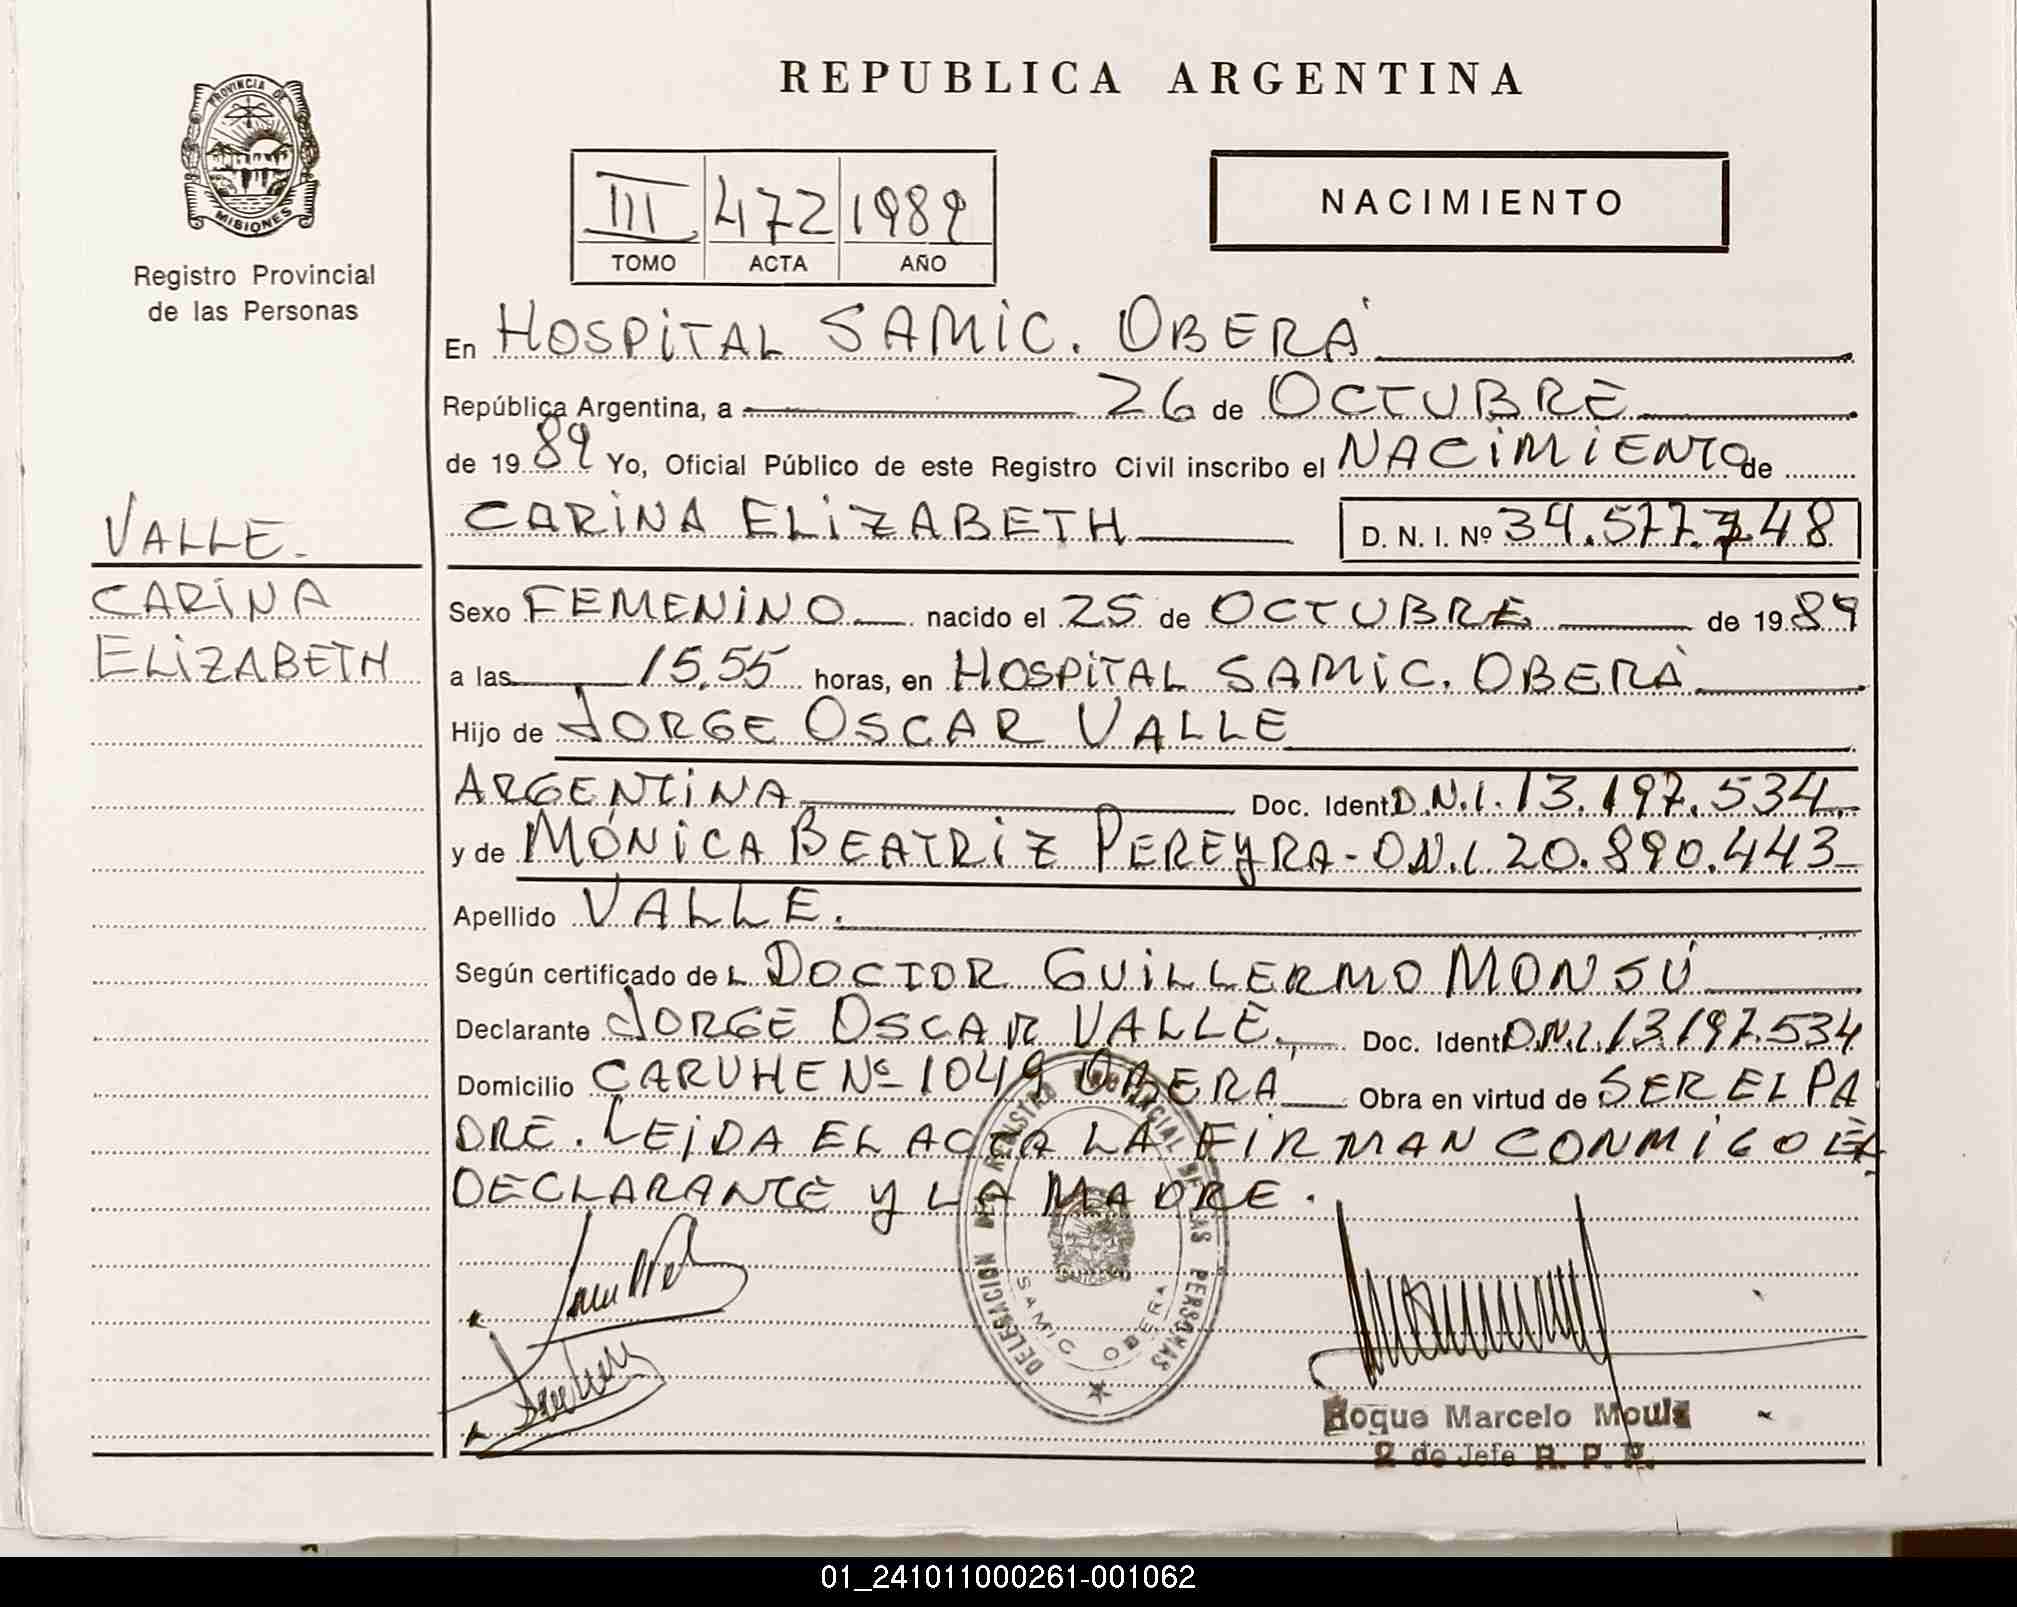 REPUBLICA ARGENTINA
PROVINCIA DE
MISIONES
Registro Provincial
de las Personas
III 472 1989
TOMO ACTA AÑO
NACIMIENTO
En HOSPITAL SAMIC. OBERÁ
República Argentina, a 26 de OCTUBRE
de 1989 Yo, Oficial Público de este Registro Civil inscribo el NACIMIENTO de
CARINA ELIZABETH D. N. I. Nº 34.577.748
VALLE.
CARINA
ELIZABETH
Sexo FEMENINO nacido el 25 de OCTUBRE de 1989
a las 15,55 horas, en HOSPITAL SAMIC. OBERÁ
Hijo de JORGE OSCAR VALLE
ARGENTINA Doc. Ident D.N.I. 13.197.534.
y de MÓNICA BEATRIZ PEREYRA - D.N.I. 20.890.443
Apellido VALLE.
Según certificado de L DOCTOR GUILLERMO MONSÚ
Declarante JORGE OSCAR VALLE Doc. Ident D.N.I. 13.197.534
Domicilio CARUHE Nº 1049 OBERÁ Obra en virtud de SER EL PA
DRE. LEIDA EL ACTA LA FIRMAN CONMIGO EL
DECLARANTE Y LA MADRE.
DELEGACION DEL REGISTRO PROVINCIAL DE LAS PERSONAS
SAMIC OBERA
Roque Marcelo
2 do Jefe R. P. P.
01_241011000261-001062